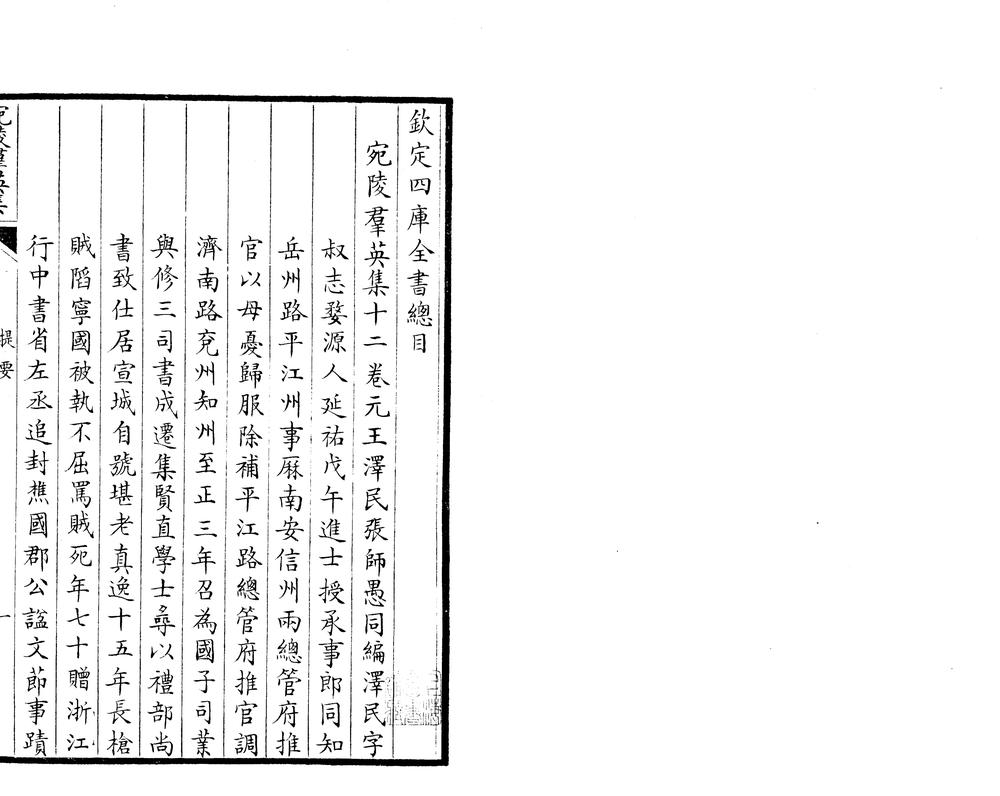 欽定四庫全書總目
宛陵羣英集十二卷元王澤民張師愚同編澤民字
叔志婺源人延祐戊午進士授承事郎同知
岳州路平江州事厤南安信州兩總管府推
官以母憂歸服除補平江路總管府推官調
濟南路兗州知州至正三年召為國子司業
與修三司書成遷集賢直學士尋以禮部尚
書致仕居宣城自號堪老真逸十五年長槍
賊䧟寧國被執不屈罵賊死年七十贈浙江
行中書省左丞追封樵國郡公諡文節事蹟
宛陵羣英集
提要
一